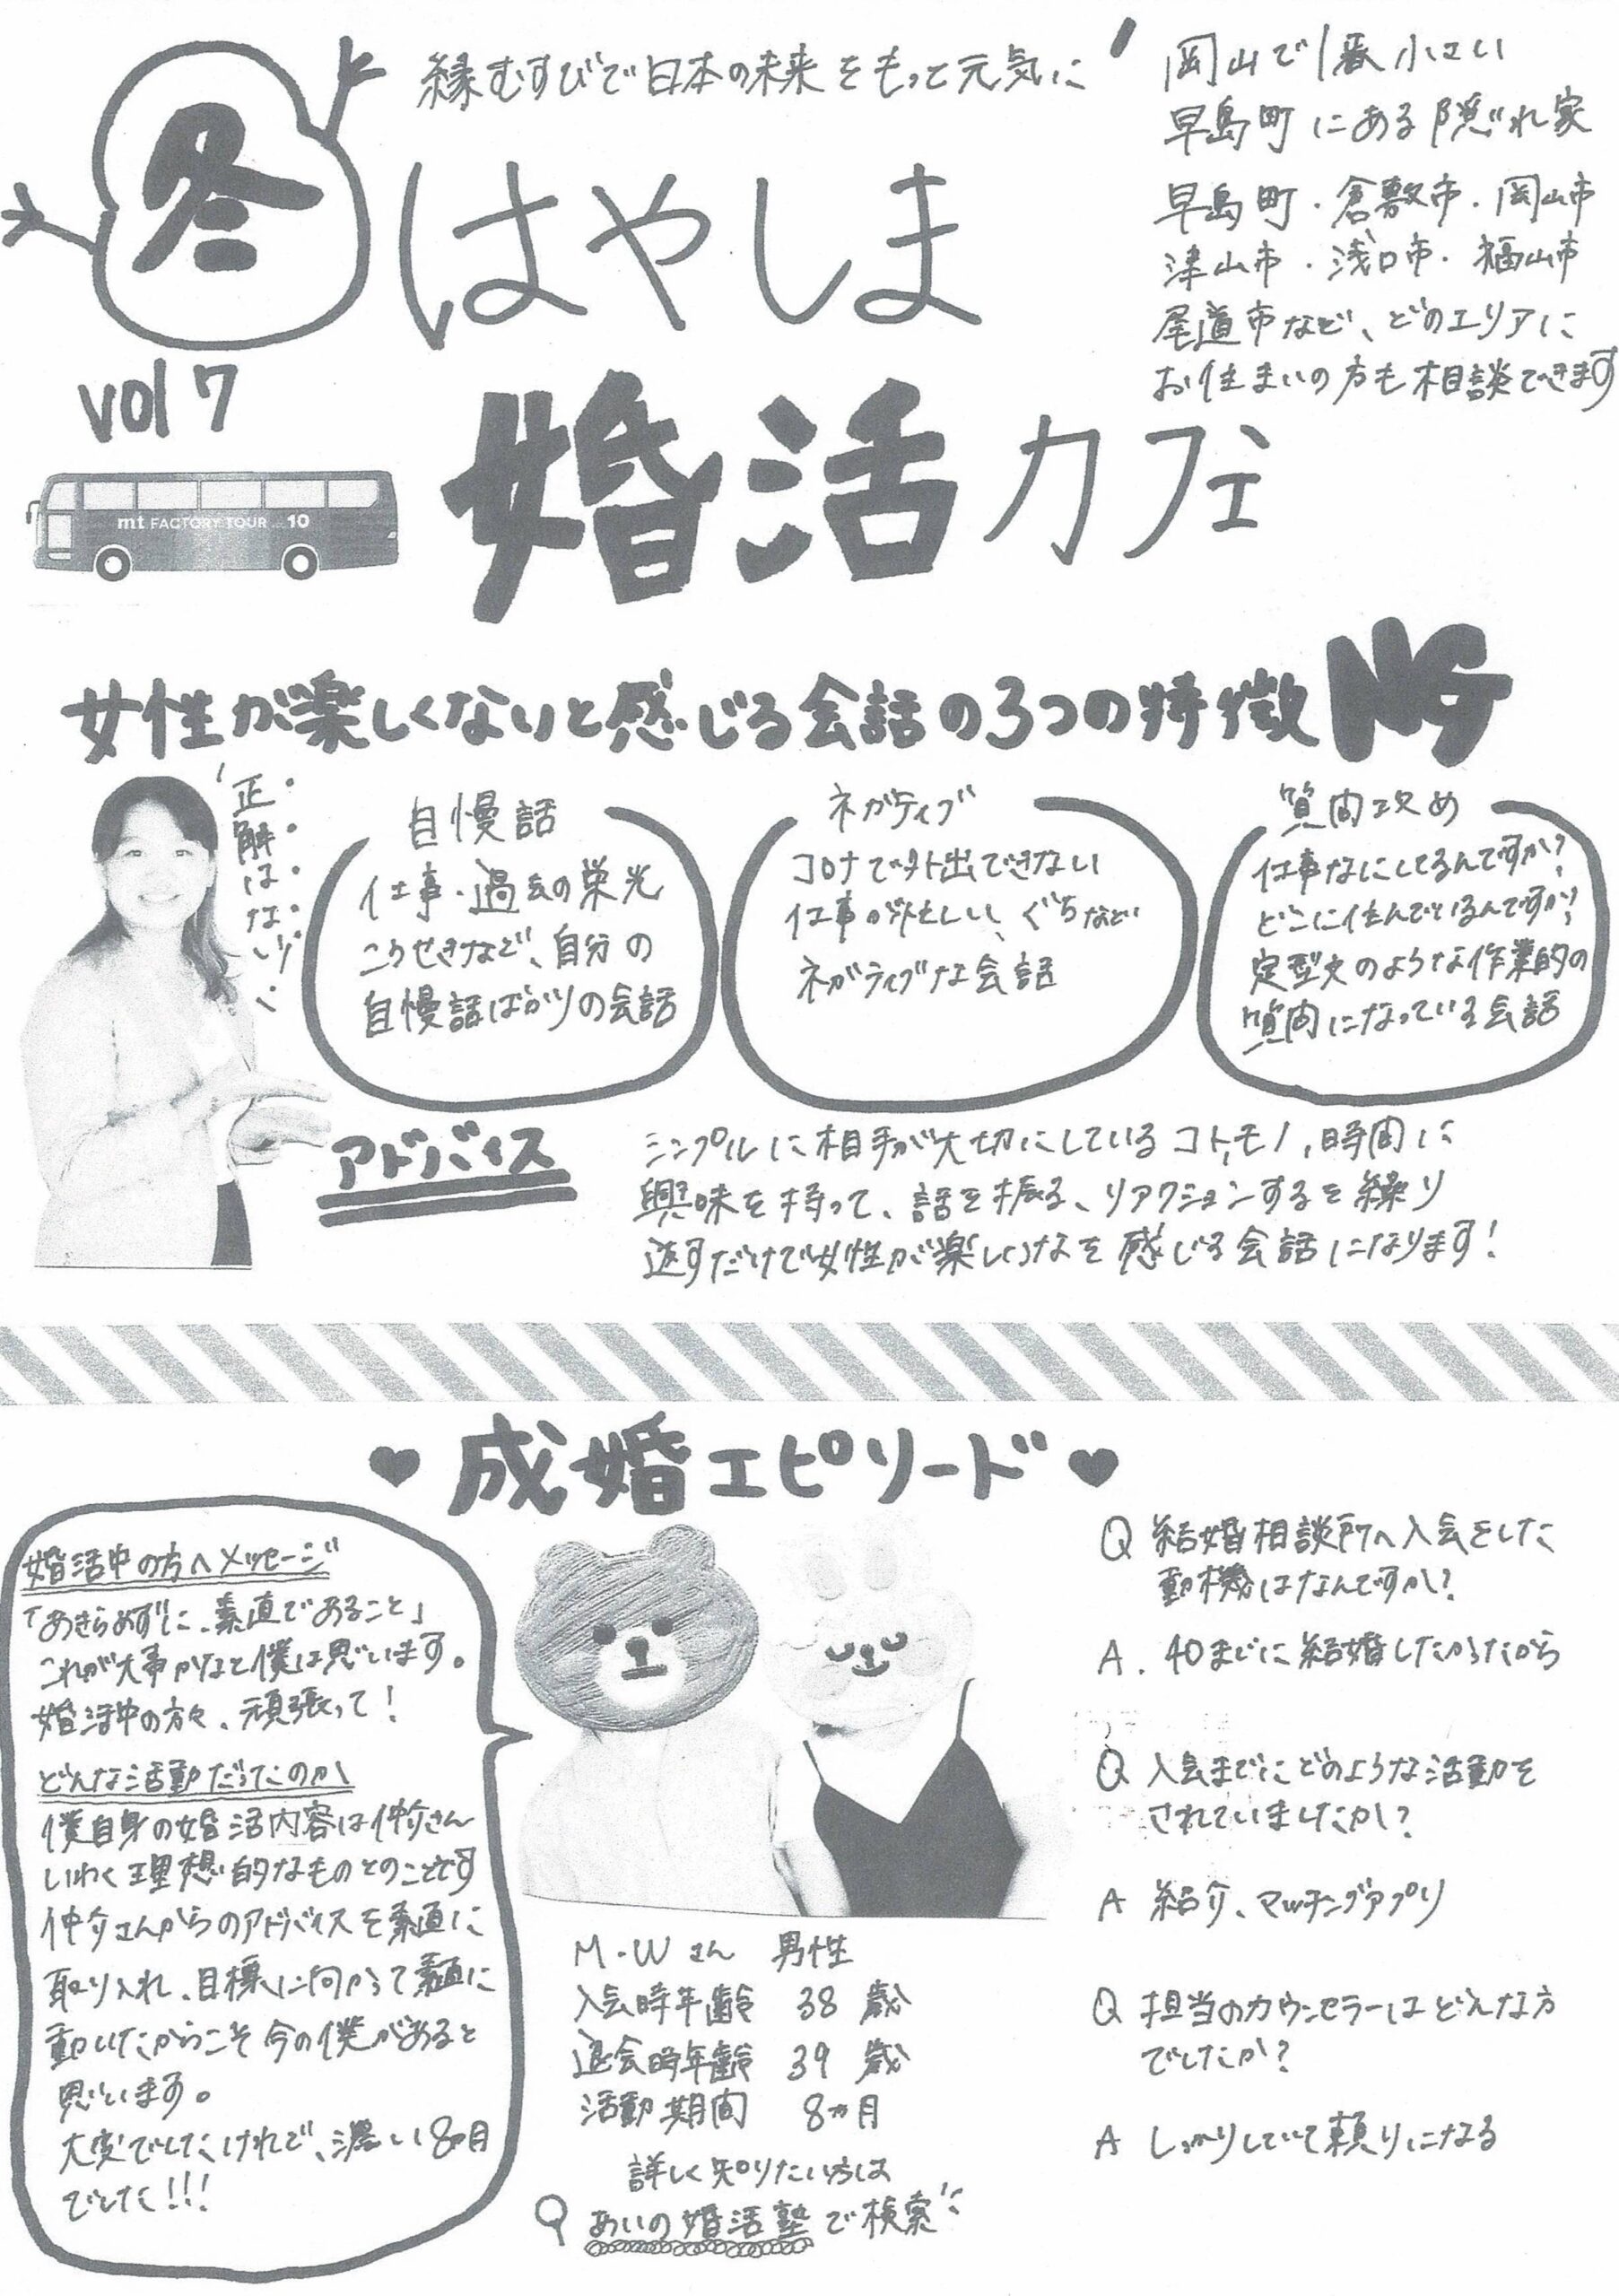 縁むすびで日本の未来をもっと元気に
冬
はやしま
vol 7
婚活カフェ
岡山で1番小さい
早島町にある隠れ家
早島町・倉敷市・岡山市
津山市・浅口市・福山市
尾道市など、どのエリアに
お住まいの方も相談できます
mt FACTORY TOUR vol. 10
女性が楽しくないと感じる会話の3つの特徴 NG
正解はない
自慢話
仕事・過去の栄光
こうせきなど、自分の
自慢話ばかりの会話
ネガティブ
コロナで外出できない
仕事が忙しい、ぐちなど
ネガティブな会話
質問攻め
仕事なにしてるんですか?
どこに住んでいるんですか?
定型文のような作業的の
質問になっている会話
アドバイス
シンプルに相手が大切にしているコト,モノ,時間に
興味を持って、話を振る、リアクションするを繰り
返すだけで女性が楽しいなを感じる会話になります!
♥ 成婚エピソード ♥
婚活中の方へメッセージ
「あきらめずに、素直であること」
これが大事かなと僕は思います。
婚活中の方々、頑張って!
どんな活動だったのか
僕自身の婚活内容は仲介さん
いわく理想的なものとのことです
仲介さんからのアドバイスを素直に
取り入れ、目標に向かって素直に
動いたからこそ今の僕があると
思います。
大変でしたけれど、濃い8ヵ月
でした!!!
M・Wさん 男性
入会時年齢 38歳
退会時年齢 39歳
活動期間 8ヵ月
詳しく知りたい方は
あいの婚活塾で検索
Q 結婚相談所へ入会をした
動機はなんですか?
A. 40までに結婚したかったから
Q 入会までにどのような活動を
されていましたか?
A 紹介、マッチングアプリ
Q 担当のカウンセラーはどんな方
でしたか?
A しっかりしていて頼りになる